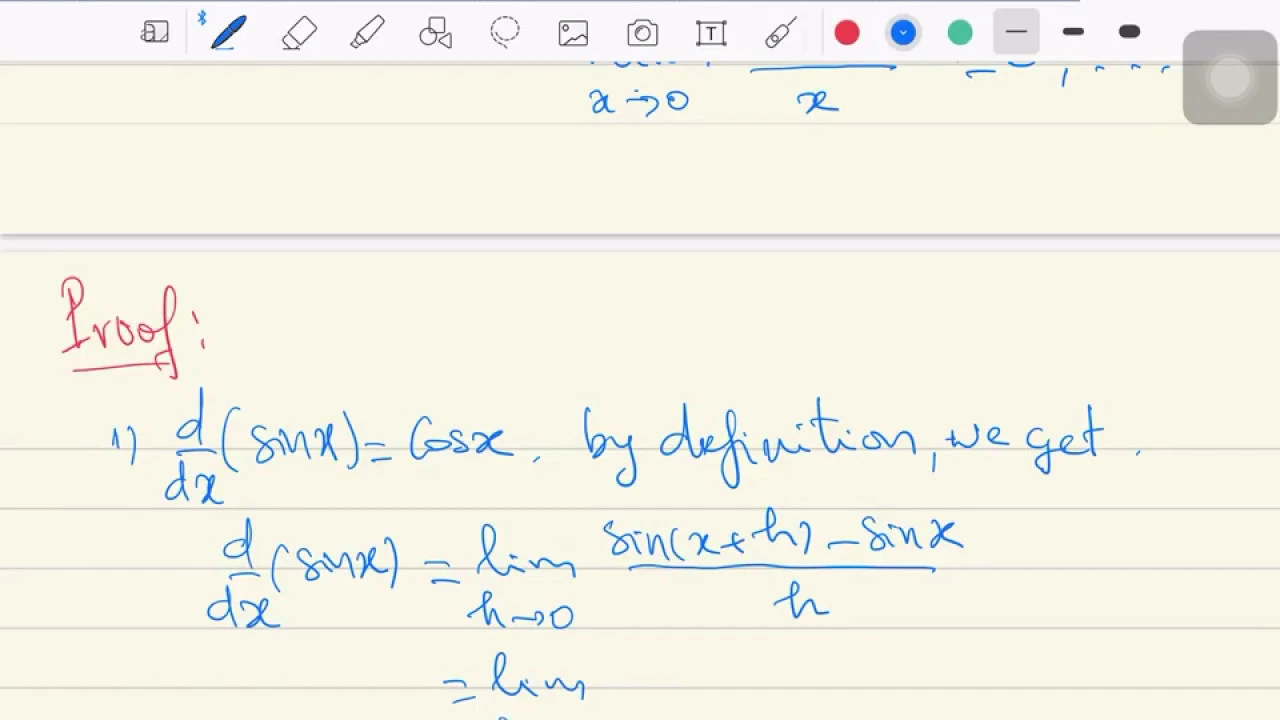 x→0 x
Proof:
1) d/dx (sinx) = Cosx. by definition, we get.
d/dx (sinx) = lim h→0 sin(x+h) - sinx / h
= lim
T